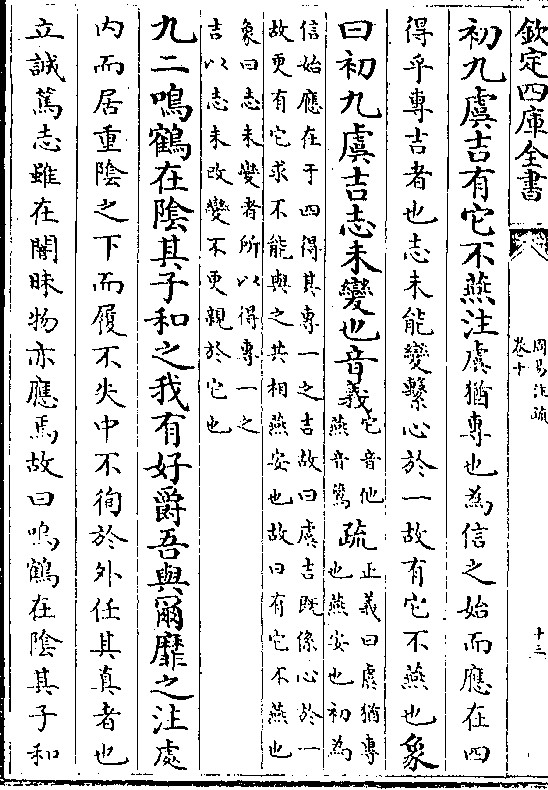 欽定四庫全書
周易注疏
卷十
十三
初九虞吉有它不燕注虞猶專也為信之始而應在四
得乎專吉者也志未能變繫心於一故有它不燕也象
曰初九虞吉志未變也音義
它音他
燕音鷰
疏
正義曰虞猶專
也燕安也初為
信始應在于四得其專一之吉故曰虞吉既係心於一
故更有它求不能與之共相燕安也故曰有它不燕也
象曰志未變者所以得專一之
吉以志未改變不更親於它也
九二鳴鶴在陰其子和之我有好爵吾與爾靡之注處
内而居重陰之下而履不失中不徇於外任其真者也
立誠篤志雖在闇昧物亦應焉故曰鳴鶴在陰其子和